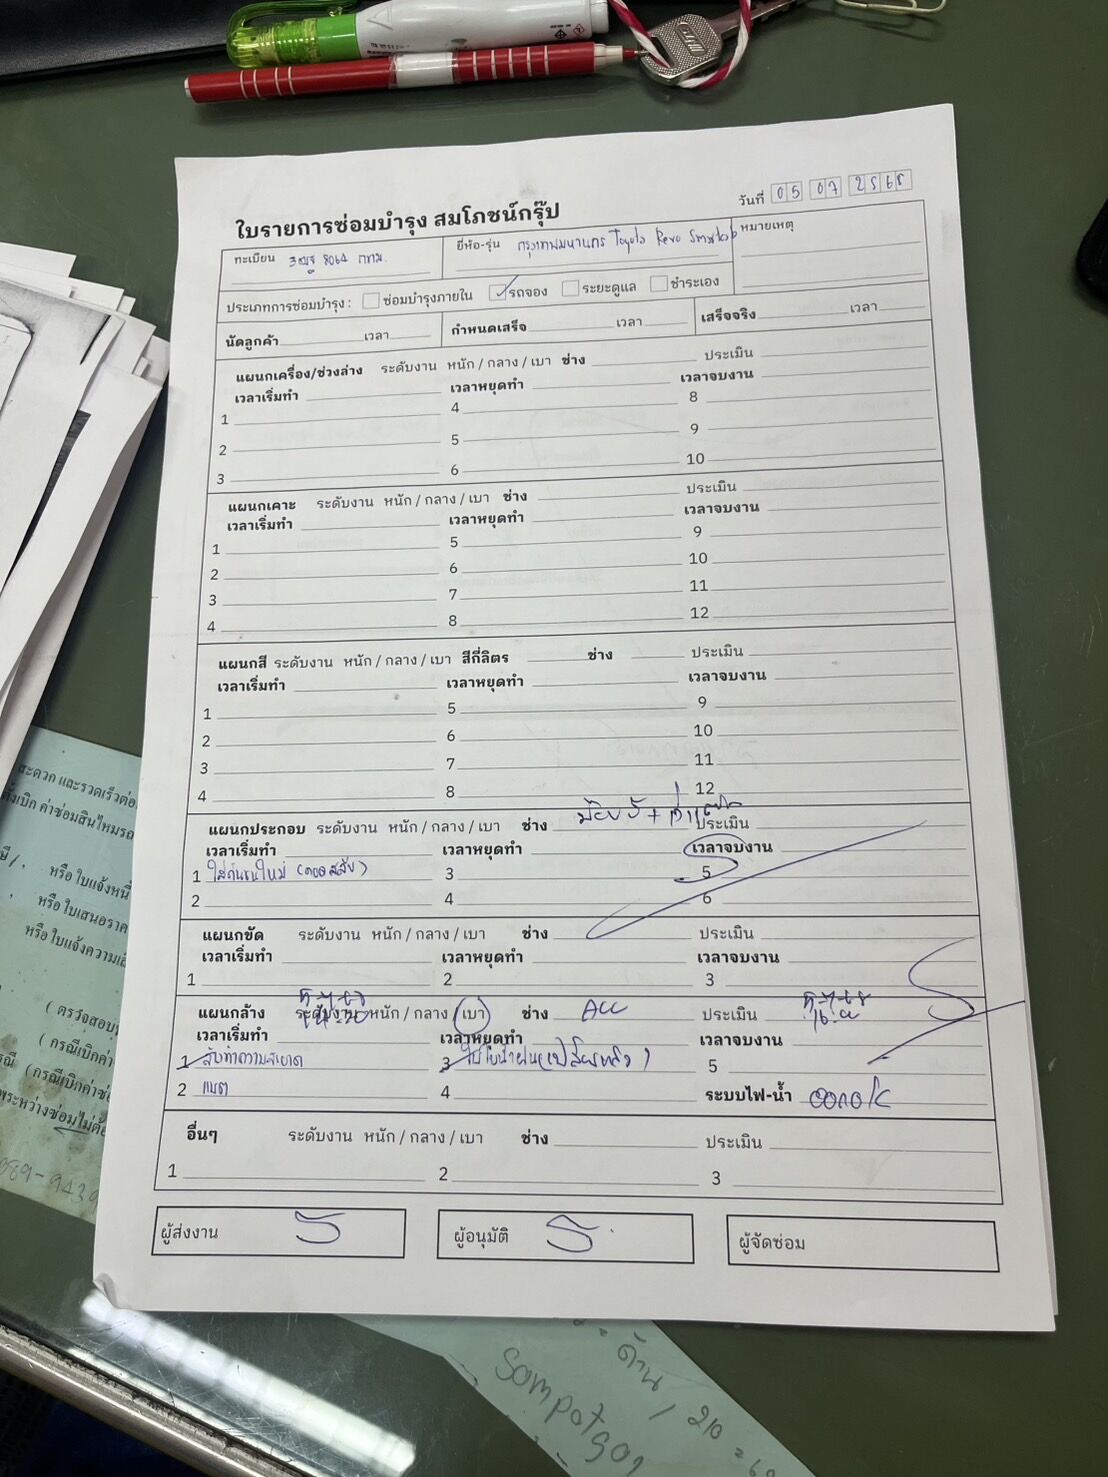 วันที่ 05 07 2568
ใบรายการซ่อมบำรุง สมโภชน์กรุ๊ป
ทะเบียน 8064 กทม. ยี่ห้อ-รุ่น กรุงเทพมหานคร Toyota Revo Smartcab หมายเหตุ
ประเภทการซ่อมบำรุง : ซ่อมบำรุงภายใน รถจอง ระยะดูแล ชำระเอง
นัดลูกค้า เวลา กำหนดเสร็จ เวลา เสร็จจริง เวลา
แผนกเครื่อง/ช่วงล่าง ระดับงาน หนัก / กลาง / เบา ช่าง ประเมิน
เวลาเริ่มทำ เวลาหยุดทำ เวลาจบงาน
1 4 8
2 5 9
3 6 10
แผนกเคาะ ระดับงาน หนัก / กลาง / เบา ช่าง ประเมิน
เวลาเริ่มทำ เวลาหยุดทำ เวลาจบงาน
1 5 9
2 6 10
3 7 11
4 8 12
แผนกสี ระดับงาน หนัก / กลาง / เบา สีกี่ลิตร ช่าง ประเมิน
เวลาเริ่มทำ เวลาหยุดทำ เวลาจบงาน
1 5 9
2 6 10
3 7 11
4 8 12
แผนกประกอบ ระดับงาน หนัก / กลาง / เบา ช่าง ประเมิน
เวลาเริ่มทำ เวลาหยุดทำ เวลาจบงาน
1 ใส่กันชนใหม่ 3 5
2 4 6
แผนกขัด ระดับงาน หนัก / กลาง / เบา ช่าง ประเมิน
เวลาเริ่มทำ เวลาหยุดทำ เวลาจบงาน
1 2 3
แผนกล้าง ระดับงาน หนัก / กลาง / เบา ช่าง ประเมิน
เวลาเริ่มทำ เวลาหยุดทำ เวลาจบงาน
1 ทำความสะอาด 3 5
2 แบต 4 ระบบไฟ-น้ำ
อื่นๆ ระดับงาน หนัก / กลาง / เบา ช่าง ประเมิน
1 2 3
ผู้ส่งงาน ผู้อนุมัติ ผู้จัดซ่อม
สะดวก และรวดเร็วต่อ
ค่าซ่อมสินไหมรถ
หรือ ใบแจ้งหนี้
หรือ ใบเสนอราค
หรือ ใบแจ้งความ
( ตรวจสอบ
( กรณีเบิกค่า
(กรณีเบิกค่าซ่
ระหว่างซ่อมไม่ต้อ
089-9439
ด้าน / 210 =